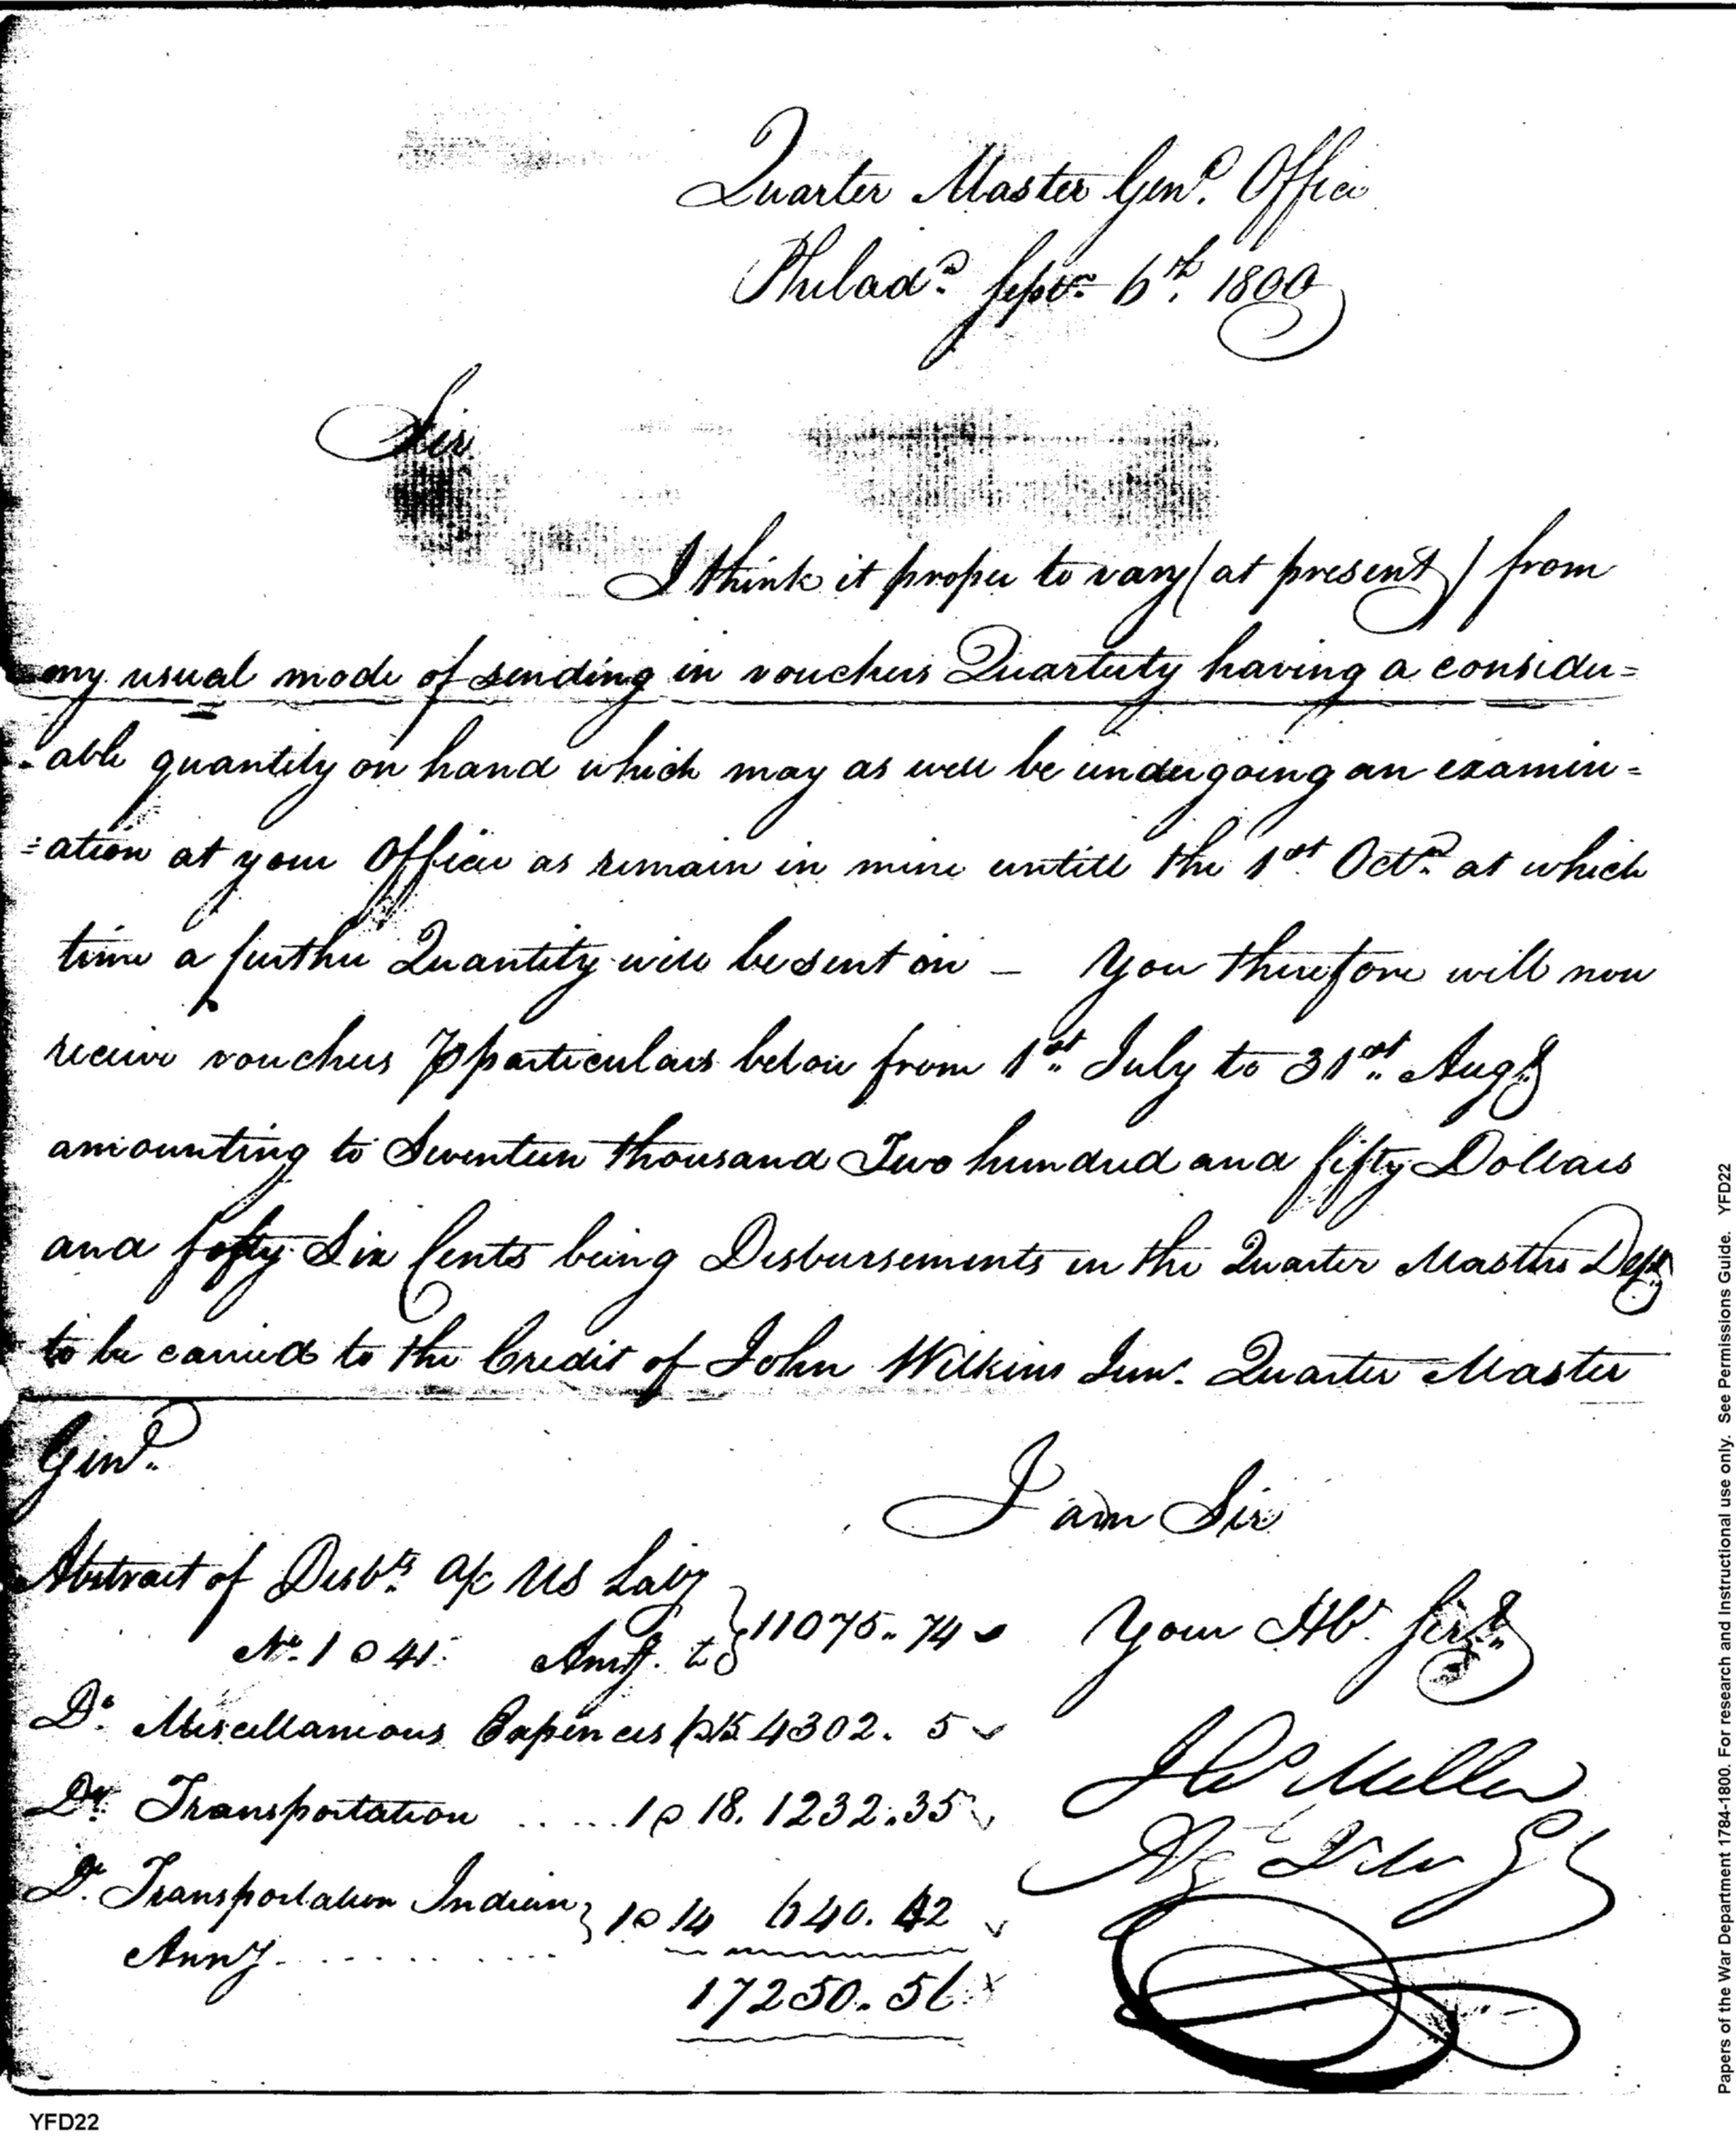 Quarter Master Genl. Office
Philada. Septr. 6th. 1800
Sir
I think it proper to vary (at present) from
my usual mode of sending in vouchers Quarterly having a consider=
=able quantity on hand which may as well be undergoing an examin=
=ation at your Office as remain in mine untill the 1st. Octr. at which
time a further Quantity will be sent on – You therefore will now
receive vouchers ⅌ particulars below from 1st. July to 31st. Augt.
amounting to Seventeen thousand Two hundred and fifty Dollars
and fifty Six Cents being Disbursements in the Quarter Masters Dept.
to be carried to the Credit of John Wilkins Junr. Quarter Master
Genl.
I am Sir
Abstract of Disbts. a/c US
No. 1 @ 41. Amt. to } 11075.. 74
Your Hb. Sert.
Do. Miscellanious Expences 1 @ 15 4302. 5
Jno. Miller
Do. Transportation ..... 1 @ 18. 1232.. 35
Do. Transportation Indian } 1 @ 14 640. 42
Anny. . . . . . . . .
17250. 56
YFD22
Papers of the War Department 1784-1800. For research and Instructional use only. See Permissions Guide. YFD22